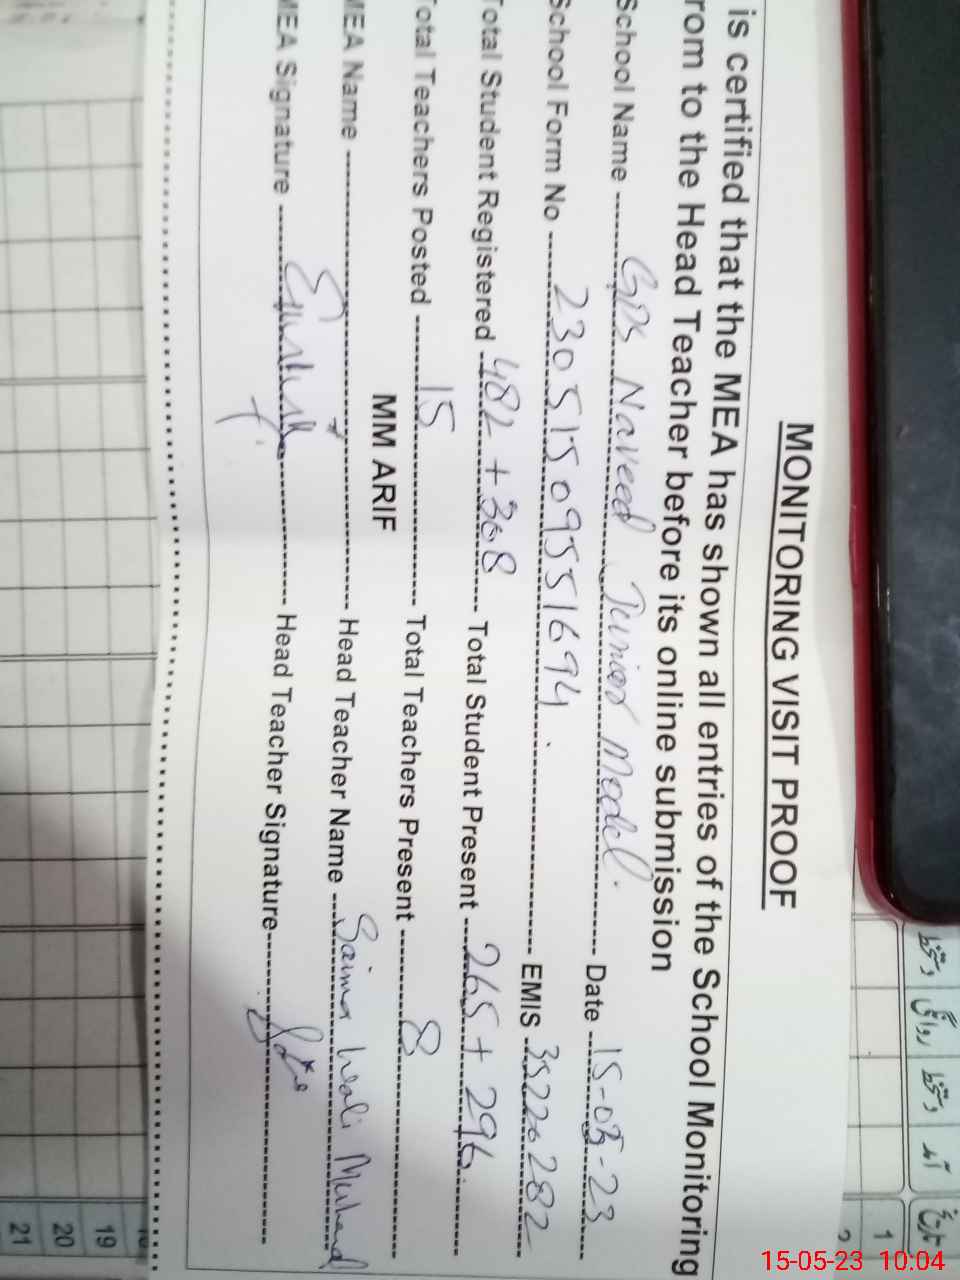 MONITORING VISIT PROOF
is certified that the MEA has shown all entries of the School Monitoring
rom to the Head Teacher before its online submission
School Name GPS Naveed Junior Model. Date 15-05-23
School Form No 230515095551694. EMIS 35220282
Total Student Registered 482 + 308 Total Student Present 265 + 296.
Total Teachers Posted 15 Total Teachers Present 8
MM ARIF
MEA Name Head Teacher Name Saima Wali Muhad
MEA Signature Head Teacher Signature
تاریخ آمد دستخط روانگی دستخط
1
2
19
20
21
15-05-23 10:04